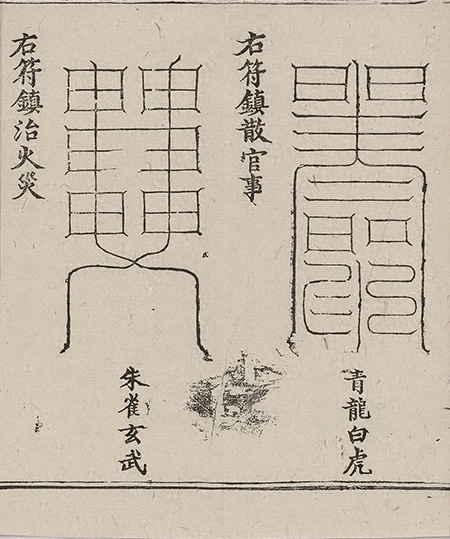 青龍白虎
右符鎮散官事
朱雀玄武
右符鎮治火災